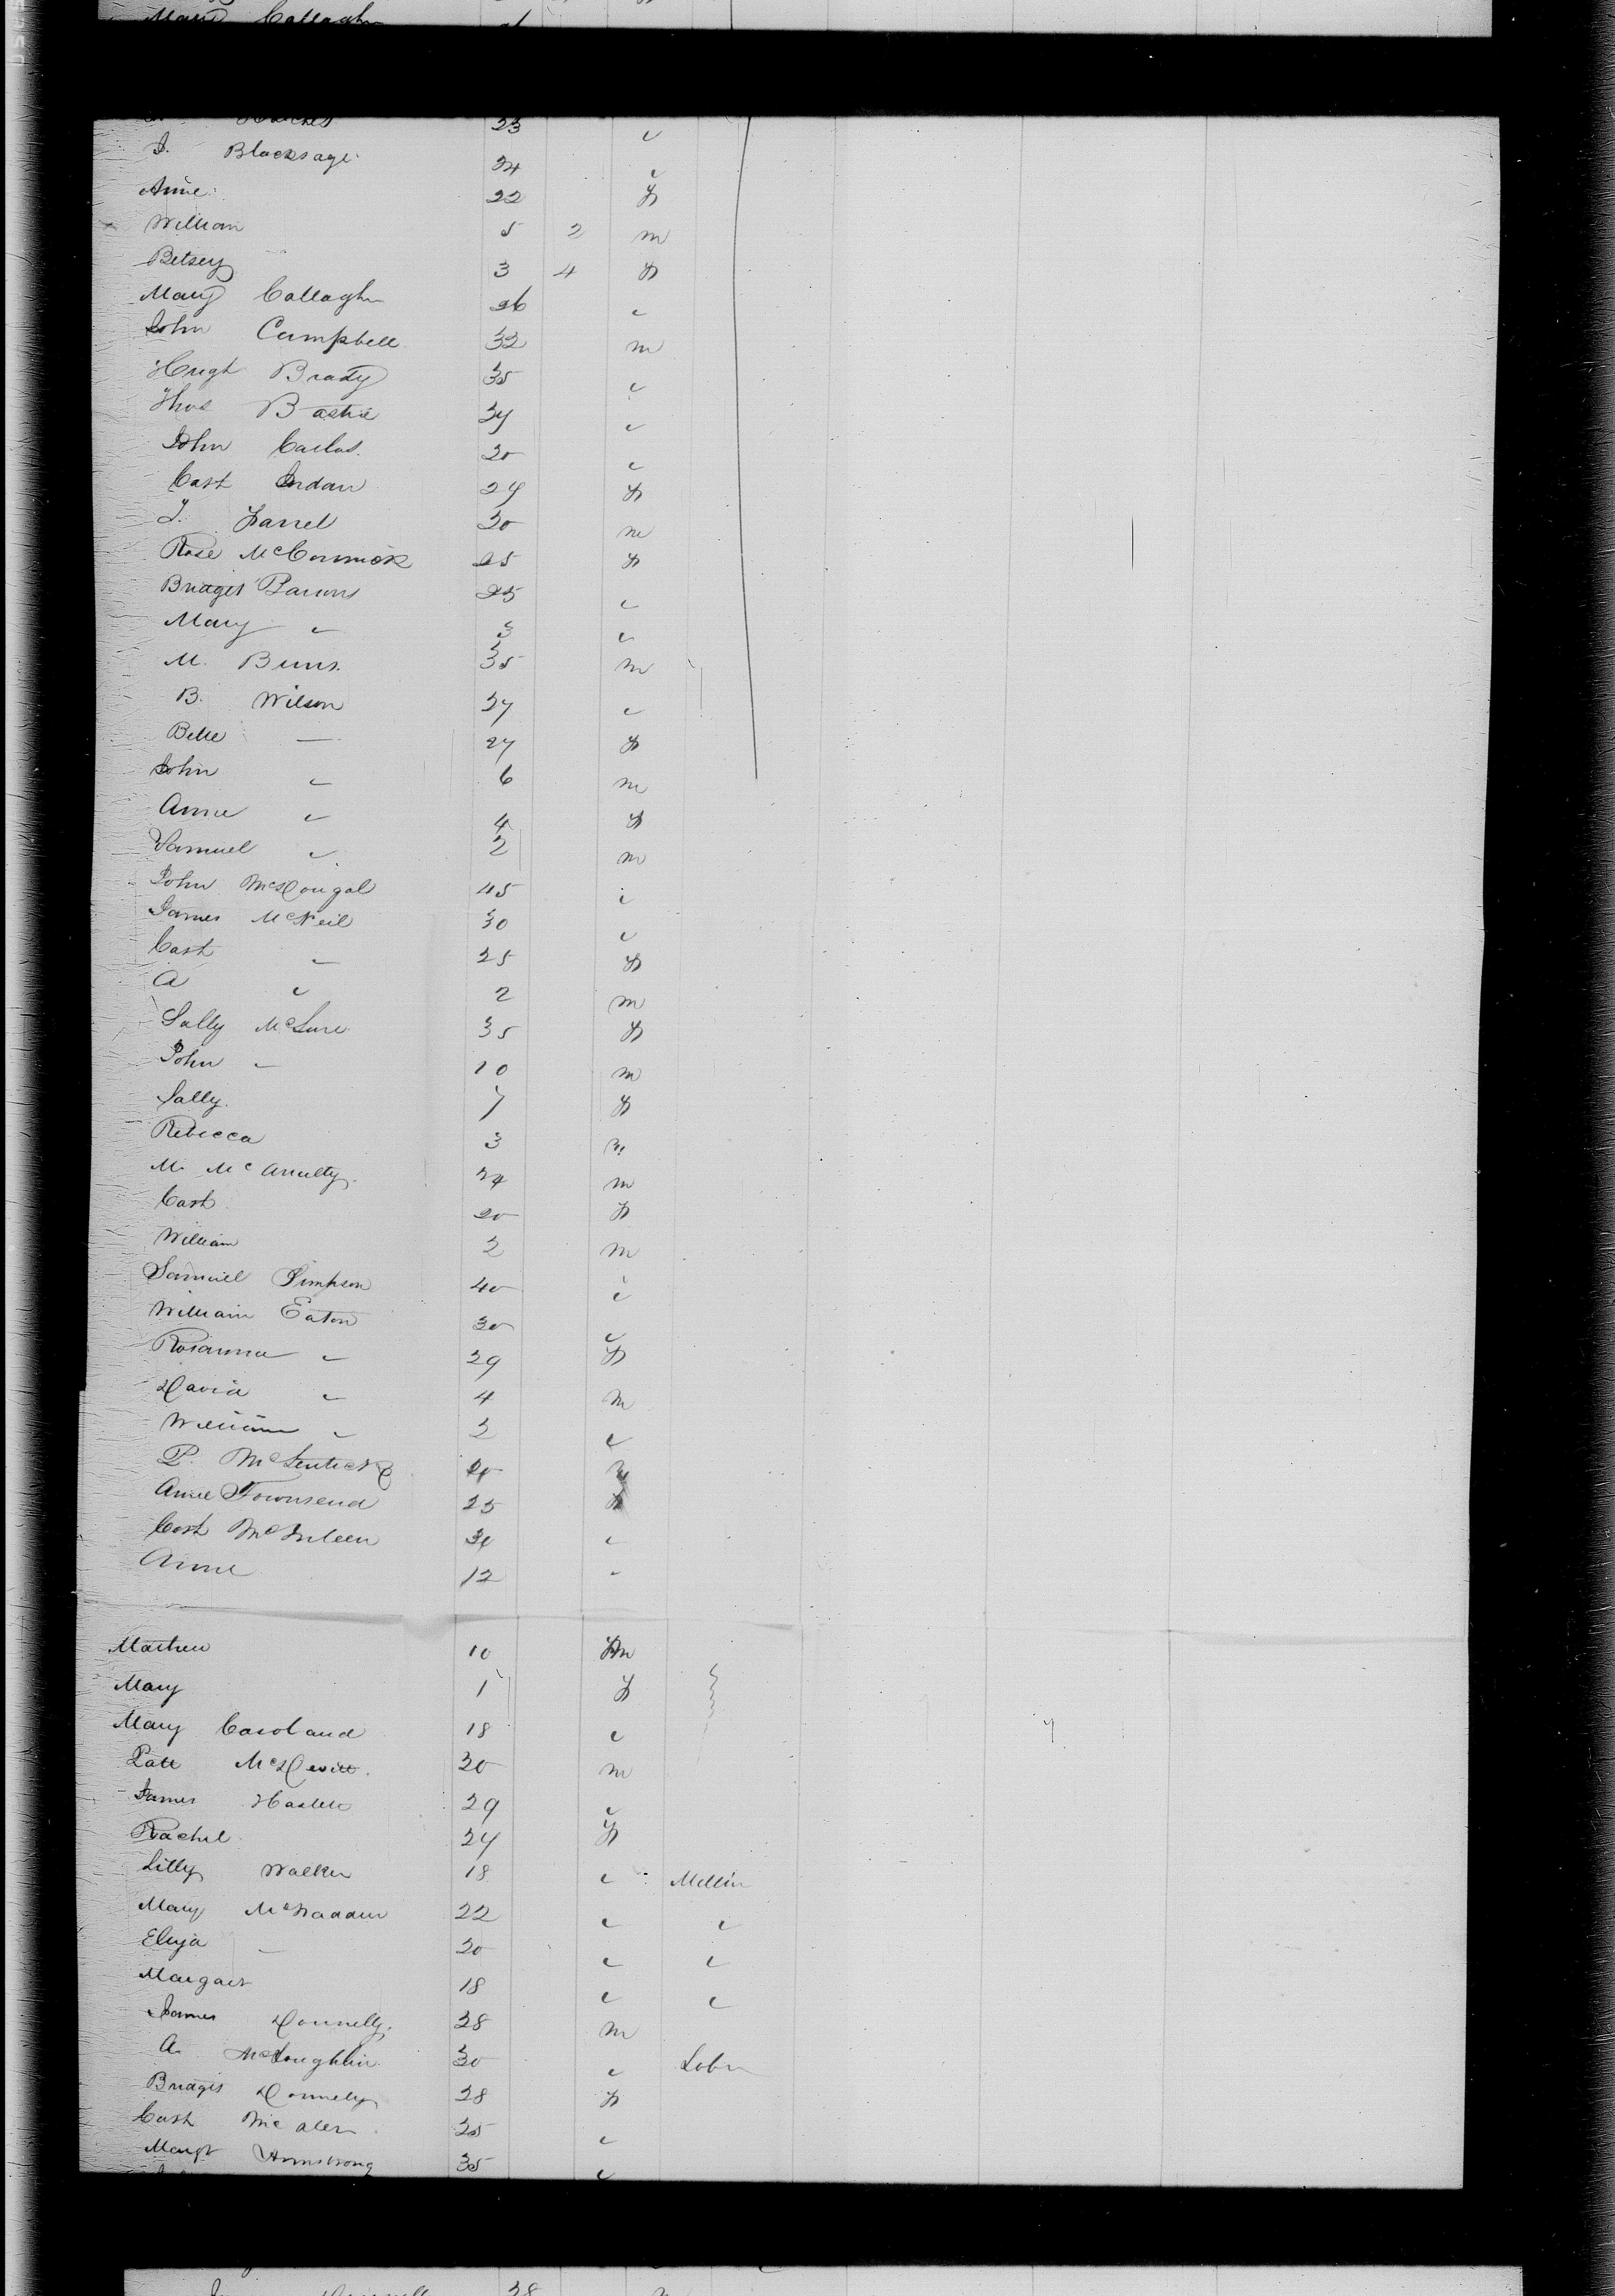 Mary Callaghn 26
23 "
J. Blacksage 24 "
Anne 22 F
William 5 2 m
Betsey 3 4 F
Mary Callaghn 26 "
John Campbell 32 m
Hugh Brady 35 "
Thos Bastie 34 "
John Carlos. 20 "
Cath Jordan 24 F
J. Farrel 30 m
Rose McCormick 25 F
Bridget Parsons 25 "
Mary " 3 "
M. Burns. 35 m
B. Wilson 27 "
Belle — 27 F
John " 6 m
Anne " 4 F
Samuel " 2 m
John McDougal 45 "
James McNeil 30 "
Cath " 25 F
A " 2 m
Sally McLure 35 F
John " 10 m
Sally. 7 F
Rebecca 3 m
M. McAnulty. 24 m
Cath 20 F
William 2 m
Samuel Simpson 40 "
William Eaton 30 "
Rosanna " 29 F
David " 4 m
William " 2 "
P. 20 m
Anne Townsend 25 F
Cath "
Anne 12 "
Mathew 10 m
Mary 1 F
Mary Casoland 18 "
Patt McDevitt. 30 m
James Haslett 29 "
Rachel 24 F
Lilly Walker 18 " Millin
Mary McFadden 22 " "
Eliza — 20 " "
Margaret 18 " "
James Donnelly. 28 m
A. McLoughlin 30 " Labr
Bridget Donnely 28 F
Cath McAleer 25 "
Margt Armstrong 35 "
Donnelly 28 m